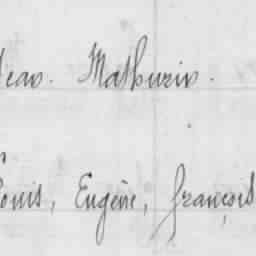 Jean. Mathurin.
Louis, Eugène, François